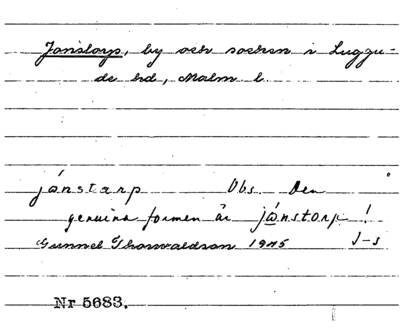 Jonstorp, by och socken i Luggu-
de hd, Malm l.
jónstarp Obs. Den
genuina formen är jónstorp!
Gunnel Thorwaldson 1945 J-s
Nr 5683.